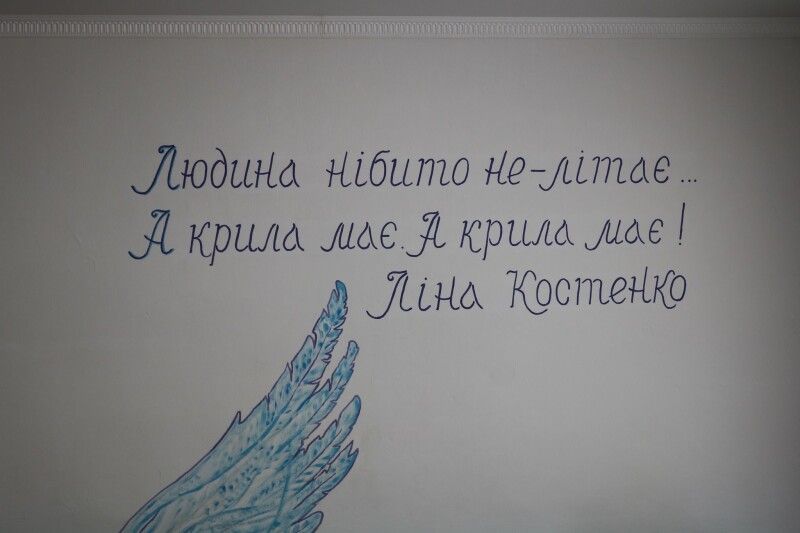 Людина нібито не-літає...
А крила має. А крила має!
Ліна Костенко